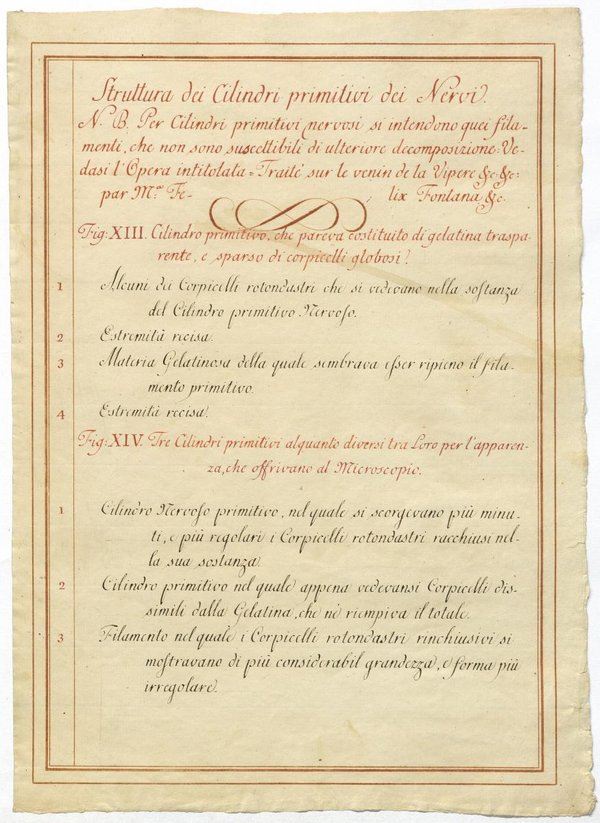 Struttura dei Cilindri primitivi dei Nervi.
N. B. Per Cilindri primitivi nervosi si intendono quei fila-
menti, che non sono suscettibili di ulteriore decomposizione: Ve-
dasi l'Opera intitolata = Traité sur le venin de la Vipere &c. &c:
par M.r Fe- lix Fontana &c.
Fig: XIII. Cilindro primitivo, che pareva costituito di gelatina traspa-
rente, e sparso di corpicelli globosi.
1 Alcuni dei Corpicelli rotondastri che si vedevano nella sostanza
del Cilindro primitivo Nervoso.
2 Estremità recisa.
3 Materia Gelatinosa della quale sembrava esser ripieno il fila-
mento primitivo.
4 Estremità recisa.
Fig: XIV. Tre Cilindri primitivi alquanto diversi tra Loro per l'apparen-
za, che offrivano al Microscopio.
1 Cilindro Nervoso primitivo, nel quale si scorgevano più minu-
ti, e più regolari i Corpicelli rotondastri racchiusi nel-
la sua sostanza.
2 Cilindro primitivo nel quale appena vedevansi Corpicelli dis-
simili dalla Gelatina, che nè riempiva il totale.
3 Filamento nel quale i Corpicelli rotondastri rinchiusivi si
mostravano di più considerabil grandezza, e forma più
irregolare.